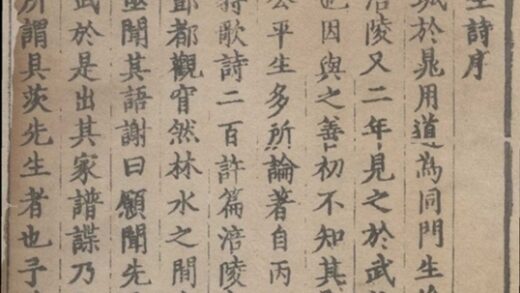 生詩序
城於晁用道為同門生後
涪陵又二年見之於武
也因與之善初不知其
公平生多所論著自丙
特歌詩二百許篇涪陵
都觀窅然林水之間
亟聞其語謝曰願聞先
武於是出其家譜諜乃
所謂具茨先生者也予